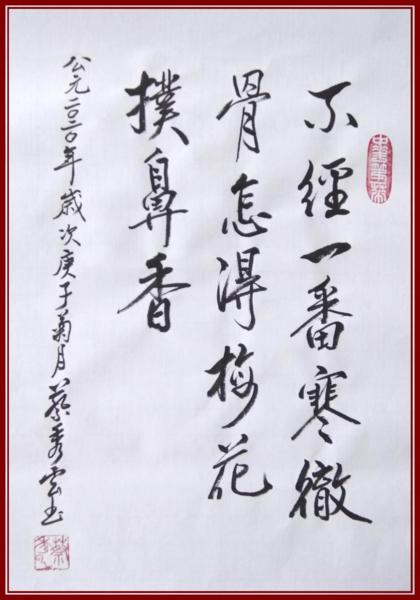 不經一番寒徹
骨怎得梅花
撲鼻香
公元二〇二〇年歲次庚子菊月蔡秀云玉